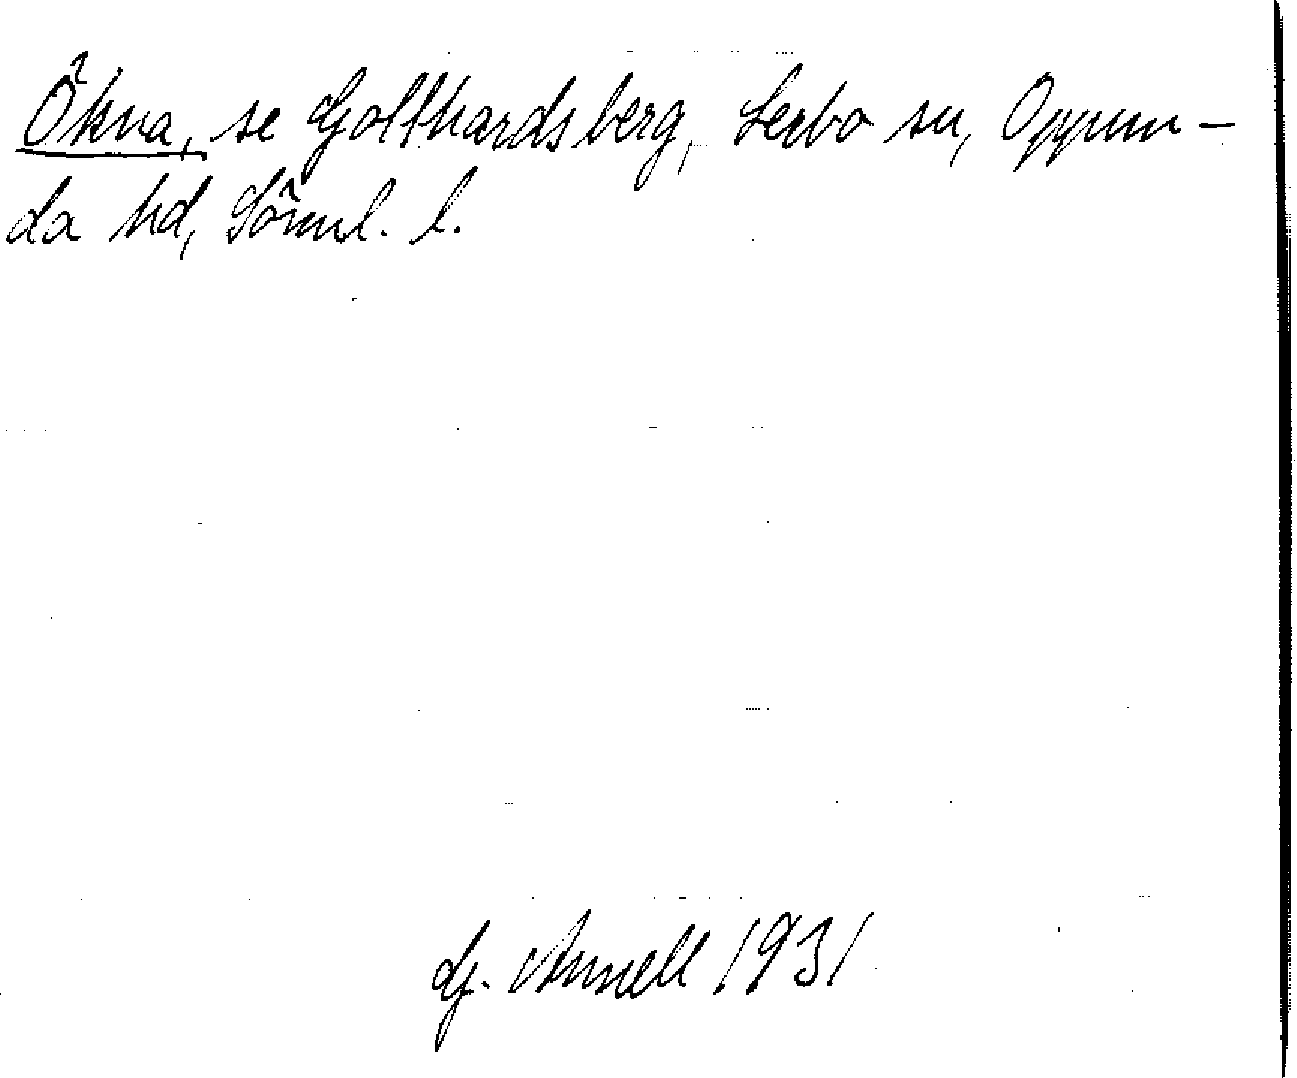 Ökna, se Gotthardsberg, Lerbo sn, Oppun-
da hd, Sörml. l.
G. Annell 1931